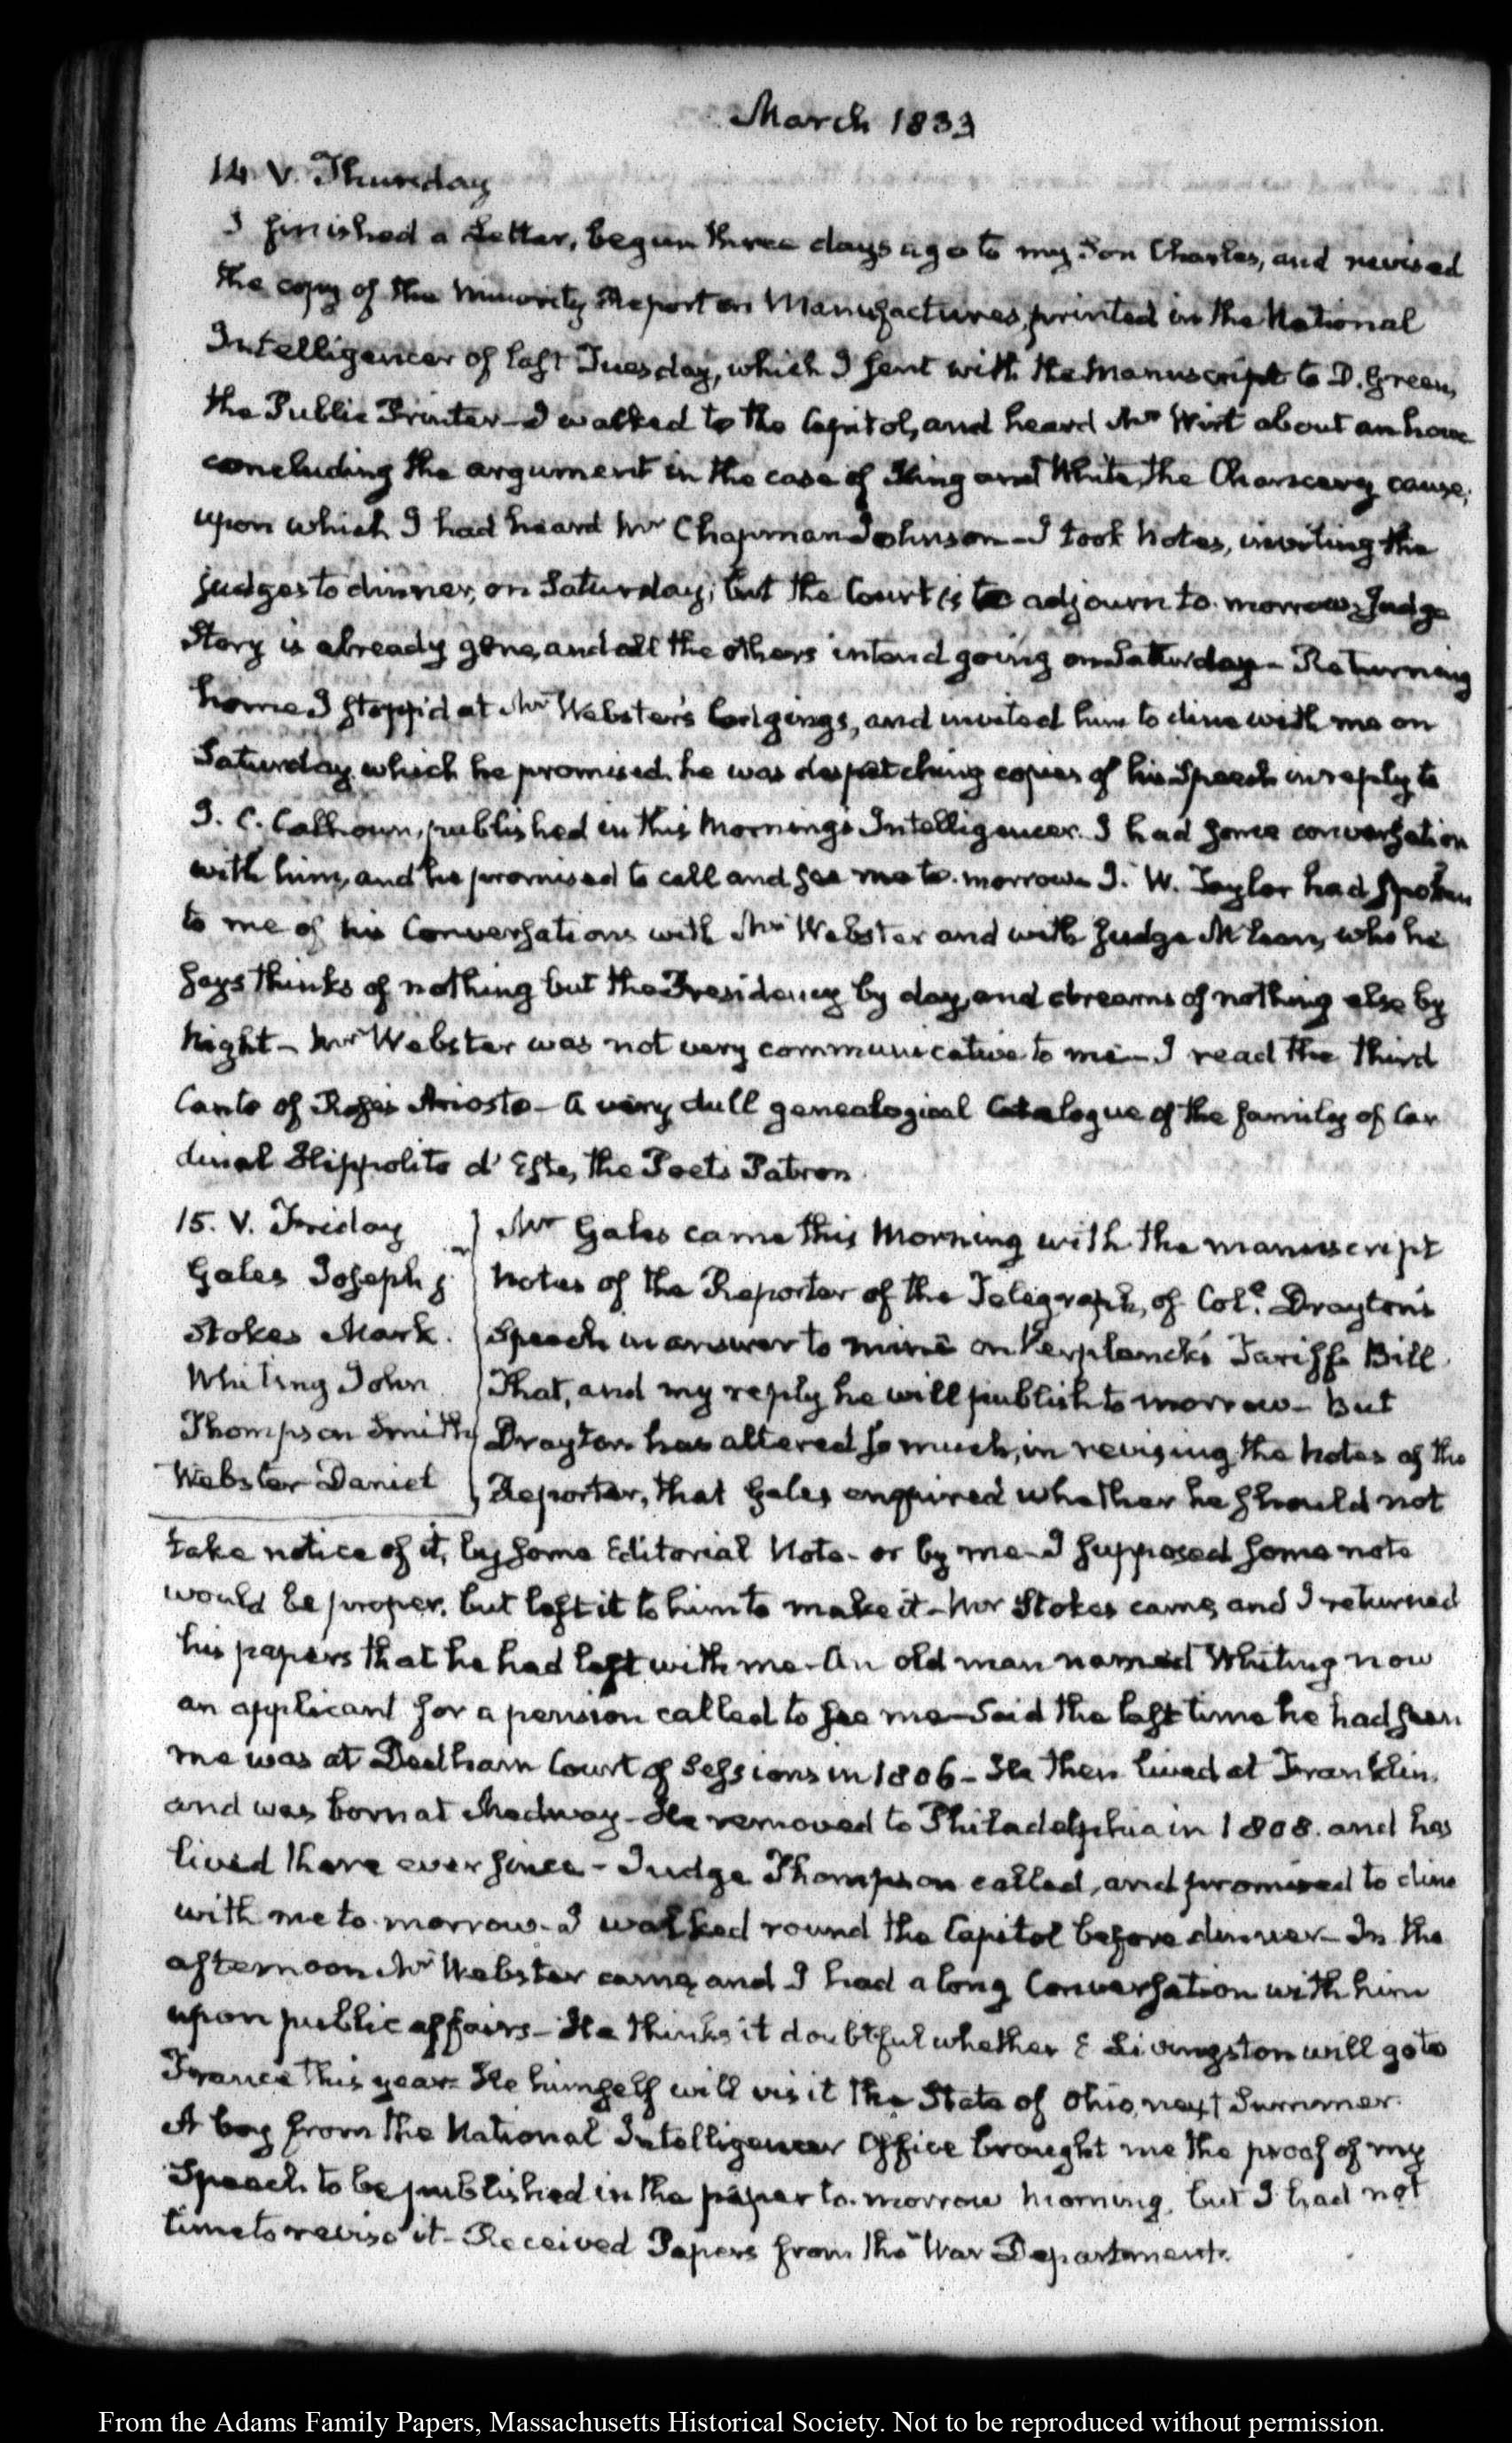 March 1833
14. V. Thursday
I finished a Letter, begun three days ago to my Son Charles, and revised
the copy of the Minority Report on Manufactures, printed in the National
Intelligencer of last Tuesday, which I sent with the Manuscript to D. Green,
the Public Printer—I walked to the Capitol, and heard Mr Wirt about an hour
concluding the argument in the case of King and White, the Chancery cause,
upon which I had heard Mr Chapman Johnson—I took Notes, inviting the
judges to dinner, on Saturday; but the Court is to adjourn to-morrow, Judge
Story is already gone, and all the others intend going on Saturday—Returning
home I stopp'd at Mr Webster's lodgings, and invited him to dine with me on
Saturday which he promised. he was despatching copies of his Speech in reply to
J. C. Calhoun, published in this Morning's Intelligencer. I had some conversation
with him, and he promised to call and see me to-morrow. J. W. Taylor had spoken
to me of his Conversations with Mr Webster and with Judge McLean, who he
says thinks of nothing but the Presidency by day, and dreams of nothing else by
Night—Mr Webster was not very communicative to me—I read the third
Canto of Ariosto—A very dull genealogical Catalogue of the family of Car
dinal Hippolito d'Este, the Poet's Patron.
15. V. Friday
Gales Joseph jr
Stokes Mark.
Whiting John
Thompson Smith
Webster Daniel
Mr Gales came this Morning with the manuscript
Notes of the Reporter of the Telegraph, of Col.o Drayton's
Speech in answer to mine on Verplanck's Tariff Bill.
That, and my reply he will publish to morrow—But
Drayton has altered so much, in revising the Notes of the
Reporter, that Gales enquired whether he should not
take notice of it, by some Editorial Note—or by me—I supposed some note
would be proper, but left it to him to make it—Mr Stokes came, and I returned
his papers that he had left with me—An old man named Whiting now
an applicant for a pension called to see me—Said the last time he had seen
me was at Dedham Court of Sessions in 1806—He then lived at Franklin,
and was born at Medway—He removed to Philadelphia in 1808. and has
lived there ever since—Judge Thompson called, and promised to dine
with me to-morrow—I walked round the Capitol before dinner—In the
afternoon Mr Webster came, and I had a long Conversation with him
upon public affairs—He thinks it doubtful whether E Livingston will go to
France this year—He himself will visit the State of Ohio, next Summer.
A boy from the National Intelligencer Office brought me the proof of my
Speech to be published in the paper to-morrow morning, but I had not
time to revise it—Received Papers from the War Department.
From the Adams Family Papers, Massachusetts Historical Society. Not to be reproduced without permission.